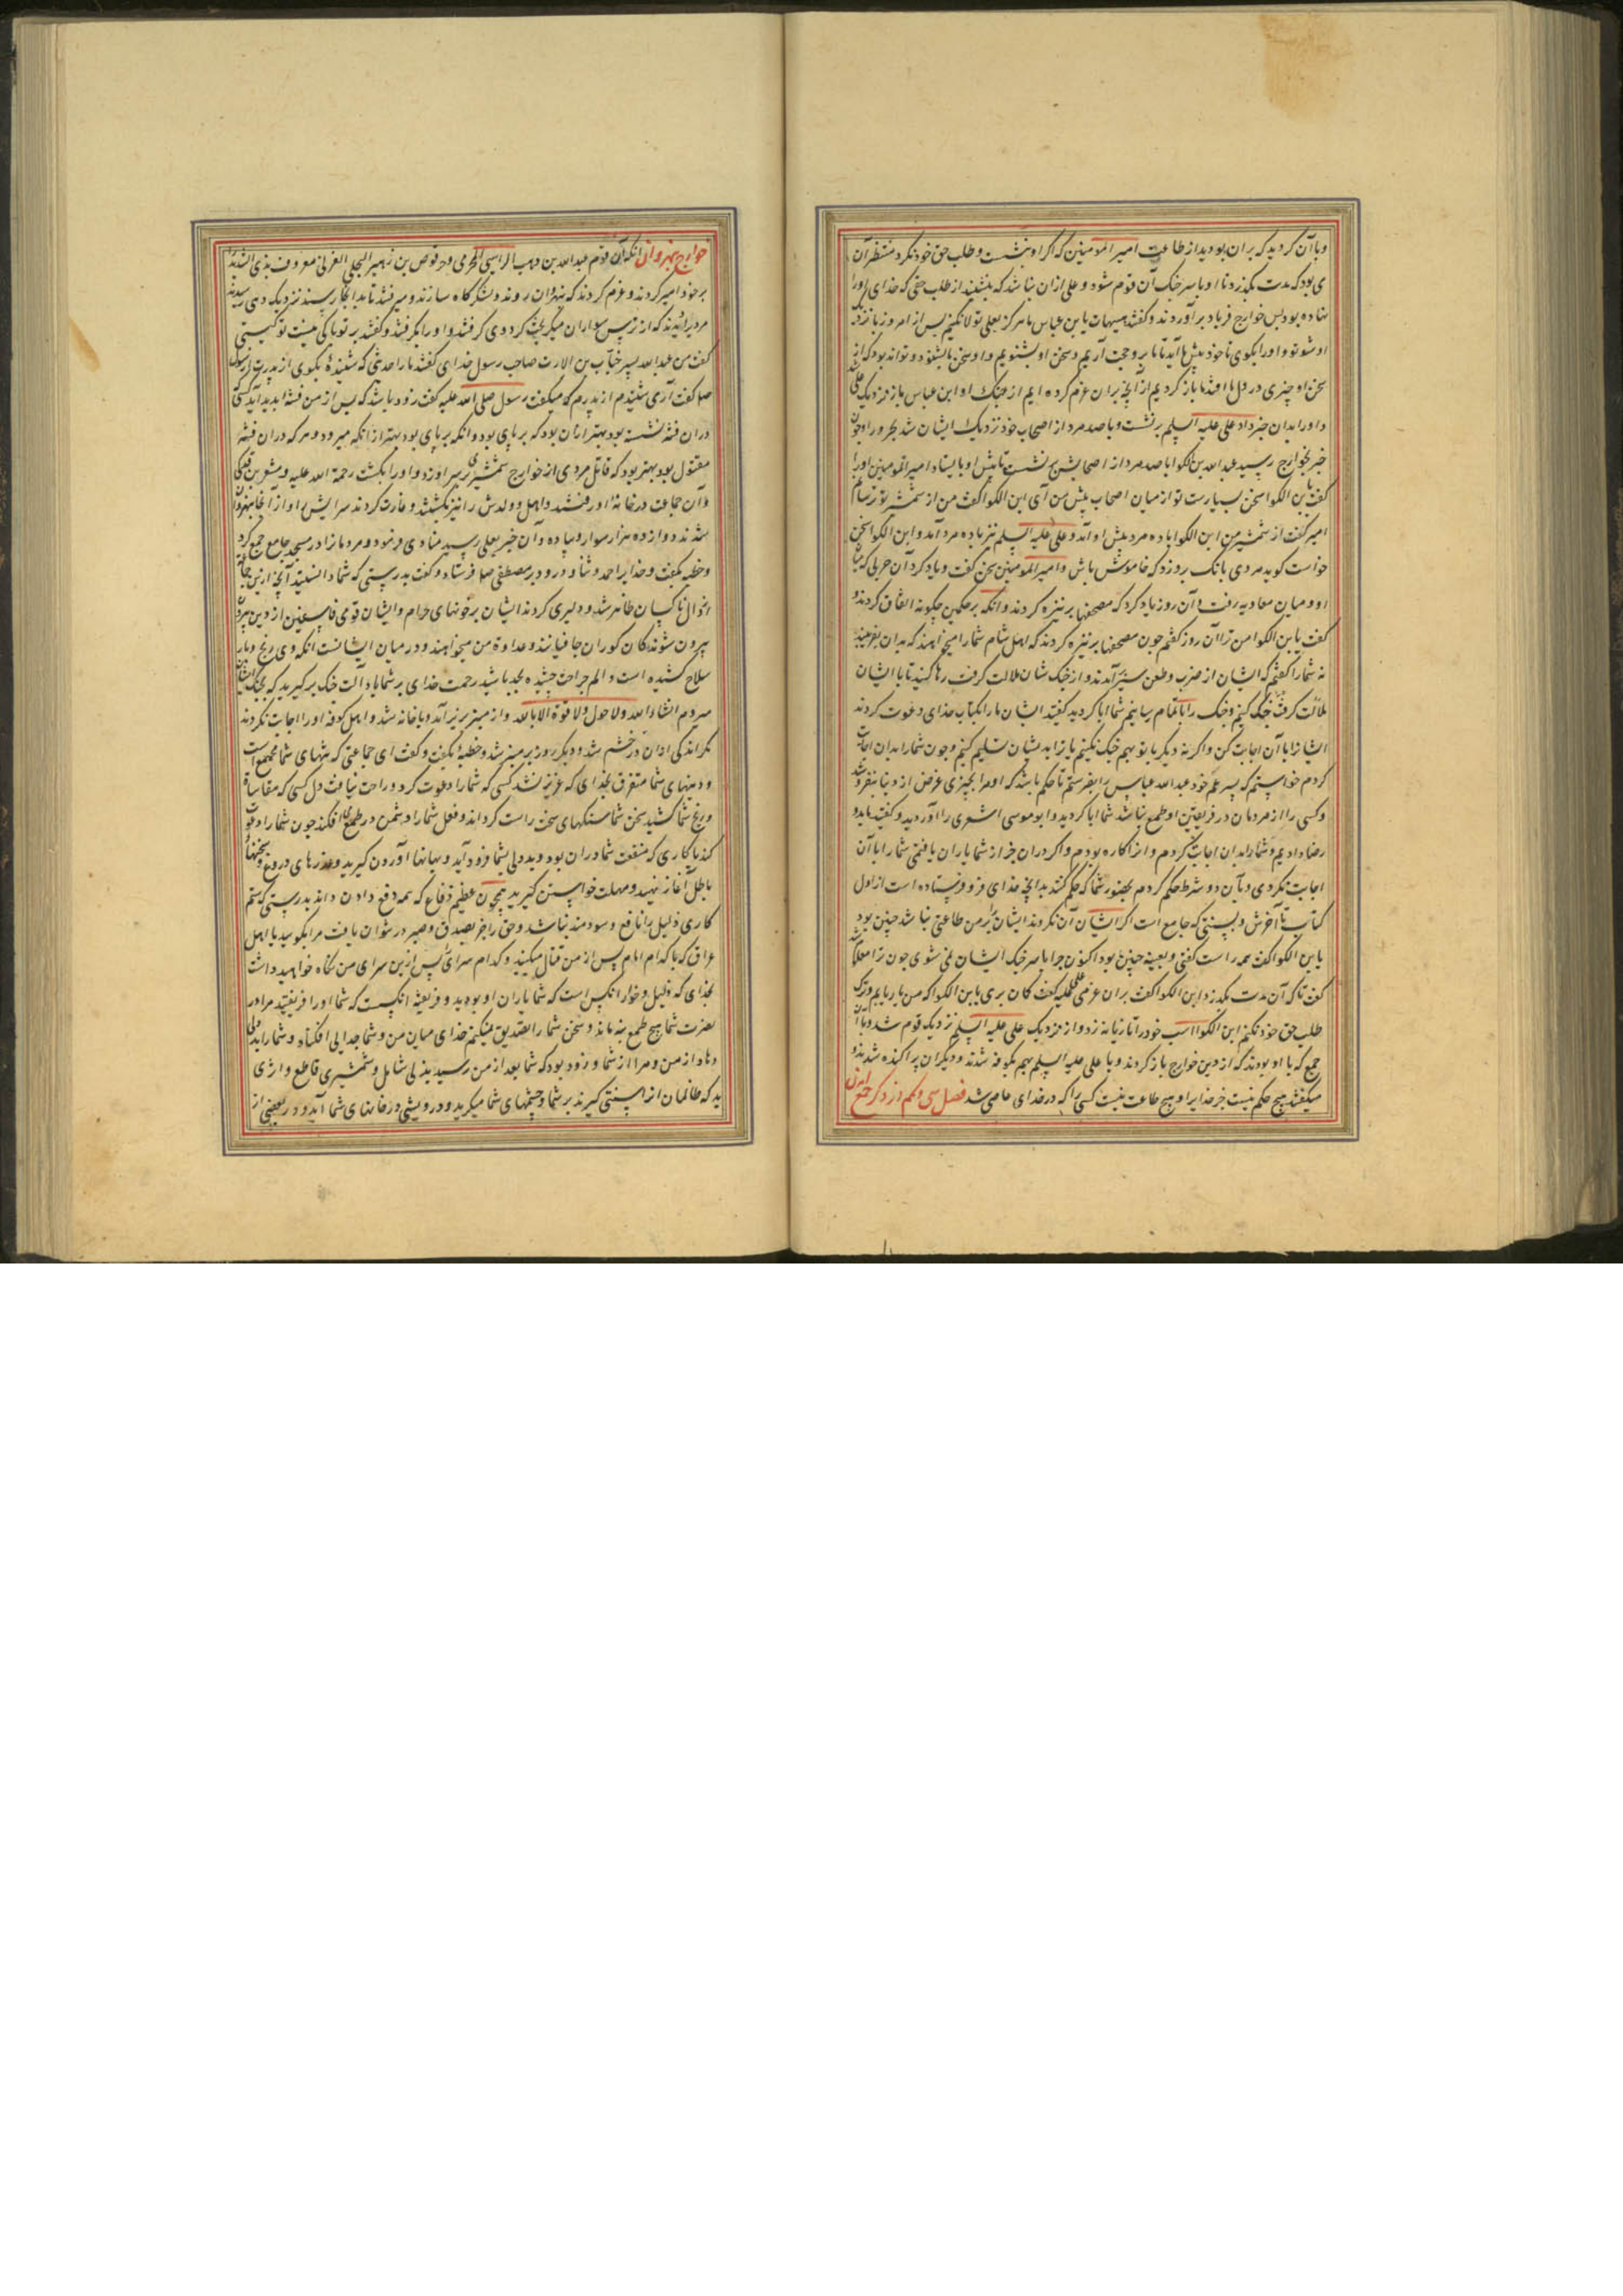 وباآن کردید که بران بودید از طاعت امیر المومنین که اکر او بنشست و طلب حق خود نکرد منتظر آن
می بود که مدت بگذرد تا او با سر جنک آن قوم شود و علی ازان نباشد که بنشیند از طلب حقی که خدای اورا
نهاده بود پس خوارج فریاد برآوردند و کفتند هیهات یا بن عباس ما هرکز بعلی تولا نکنیم پس از امروز باز کرد
او شو تو و اورا بکوی تا خود پیش ما آید تا ما برو حجت آریم و سخن او بشنویم و او سخن ما بشنود و تواند بود که از
سخن او چیزی در دل ما افتد تا باز کردیم از آنچه بران عزم کرده ایم از جنک او ابن عباس باز نزدیک علی شد
و اورا بدان خبر داد علی علیه السلم برنشست و با صد مرد از اصحاب خود نزدیک ایشان شد بحرورا و چون
خبر بخوارج رسید عبد الله بن الکوا با صد مرد از اصحابش برنشست تا پیش او بایستاد امیر المومنین اورا
کفت یا بن الکوا سخن بسیارست تو از میان اصحاب پیش من آی ابن الکوا کفت من از شمشیر تو ترسانم
امیر کفت از شمشیر من ابن الکوا با ده مرد پیش او آمد و علی علیه السلم نیز با ده مرد آمد و ابن الکوا سخن
خواست کوید مردی بانک بروزد که خاموش باش و امیر المومنین سخن کفت و یاد کرد آن حربی که میان
او و میان معاویه رفت و آن روز یاد کرد که مصحفها بر نیزه کردند و انکه بر حکمین چکونه اتفاق کردند و
کفت یا بن الکوا من ترا آن روز کفتم چون مصحفها بر نیزه کردند که اهل شام شمارا میخواهند که بدان بفریبند
نه شمارا کفتم که ایشان از ضرب و طعن سیر آمدند و از جنک شان ملالت کرفت رها کنید تا با ایشان
ملالت کرفت جنک کنیم و جنک را با تمام رسانیم شما ابا کردید کفتید ایشان مارا بکتاب خدای دعوت کردند
ایشانرا با آن اجابت کن و اکر نه دیکر با تو بهم جنک نکنیم یا ترا بدیشان تسلیم کنیم و چون شمارا بدان اجابت
کردم خواستم که پسر عم خود عبد الله عباس را بفرستم تا حکم باشد که او مرا بچیزی عرض از دنیا نفروشد
و کسی را از مردمان در فریفتن او طمع نباشد شما ابا کردید و ابو موسی اشعری را آوردید و کفتید ما بدو
رضا دادیم و شمارا بدان اجابت کردم و انرا کاره بودم و اکر دران جز از شما یاران یافتمی شمارا با آن
اجابت نکردمی و بآن دو شرط حکم کردم بحضور شما که حکم کنند بدانچه خدای فرو فرستاده است از اول
کتاب تا آخرش و بسنتی که جامع است اکر ایشان آن نکردند ایشان را بر من طاعتی نباشد چنین بود
یا بن الکوا کفت همه راست کفتی و بعینه چنین بود اکنون چرا با سر جنک ایشان نمی شوی چون ترا معلوم
کفت تا که آن مدت بگذرد ابن الکوا کفت بران عزمی علی علیه کفت کمان بری یا بن الکوا که من باز پایم و ترک
طلب حق خود نکنم ابن الکوا اسب خود را تازیانه زد و از نزدیک علی علیه السلم نزدیک قوم شد و با آن
جمع که با او بودند که از دین خوارج باز کردند و با علی علیه السلم بهم بکوفه شدند و دیکران پراکنده شدند و
میکفتند هیچ حکم نیست جز خدایرا و هیچ طاعت نیست کسی را که در خدای عاصی شد فصل سی و یکم از ذکر جمع آمدن
خوارج بنهروان انکه آن قوم عبد الله بن وهب الراسبی الحرمی و حرقوص بن زهیر البجلی العرنی معروف بذی الثدیه را
بر خود امیر کردند و عزم کردند که بنهروان روند و لشکرکاه سازند و میرفتند تا بدانجا رسیدند نزدیک دهی رسیدند
مردیرا دیدند که از ترس سواران میکریخت کردوی کرفتند و اورا بکرفتند و کفتند بر تو باکی نیست تو کیستی
کفت من عبد الله پسر خباب بن الارت صاحب رسول خدای کفتند مارا حدیثی که شنیدهٔ بکوی از پدرت از رسول
صلعم کفت آری شنیدم از پدرم که میکفت رسول صلی الله علیه کفت زود باشد که پس از من فتنها بدید آید کسی
دران فتنه نشسته بود بهتر ازان بود که بر پای بود و انکه بر پای بود بهتر از انکه میرود و هر که دران فتنه
مقتول بود بهتر بود که قاتل مردی از خوارج شمشیری بر سر او زد و اورا بکشت رحمة الله علیه و مسعر بن فدکی
و آن جماعت در خانهٔ او رفتند و اهل و ولدش را نیز بکشتند و غارت کردند سرایش را و از آنجا بنهروان
شدند دوازده هزار سوار و پیاده و آن خبر بعلی رسید منادی فرمود و مردمانرا در مسجد جامع جمع کرد
و خطبه بکفت و خدایرا حمد و ثنا و درود بر مصطفی صلعم فرستاد و کفت بدرستی که شما دانستید آنچه ازین جماعت
احوال ناکسان ظاهر شد و دلیری کردند ایشان بر خونهای حرام و ایشان قومی فاسقین از دین بیرون
بیرون شوندکان کوران جافیانند و عداوة من میخواهند و در میان ایشانست انکه وی رنج و بار
سلاح کشیده است و الم جراحت چشیده بجد باشید رحمت خدای بر شما باد آلت جنک برکیرید که بجنک ایشان
میرویم انشاء الله ولا حول ولا قوة الا بالله و از منبر بزیر آمد و با خانه شد و اهل کوفه اورا اجابت نکردند
مکر اندکی ازان در خشم شد و دیکر روز بر منبر شد و خطبهٔ بکفت و کفت ای جماعتی که تنهای شما مجتمع است
و دینهای شما متفرق بخدای که عزیز نشد کسی که شمارا دعوت کرد و راحت نیافت دل کسی که مقاساة
و رنج شما کشید سخن شما سنکهای سخت راست کرداند و فعل شما را دشمن در طمع افکند چون شمارا دعوت
کند با کاری که منفعت شما دران بود و بددلی بشما فرود آید و بهانها آوردن کیرید و عذرهای دروغ و سخنهای
باطل آغاز نهید و مهلت خواستن کیرید همچون عظیم دفاع که همه دفع دادن داند بدرستی که ستم
کاری ذلیل را نافع و سودمند نباشد و حق را جز بصدق و صبر در نتوان یافت مرا بکویید یا اهل
عراق که با کدام امام پس از من قتال میکنید و کدام سرای پس ازین سرای من نکاه خواهید داشت
بخدای که ذلیل و خوار انکس است که شما یاران او بودید و فریفته انکیست که شما اورا فریفتید مرا در
نصرت شما هیچ طمع نه ماند و سخن شما را تصدیق نمیکنم خدای میان من و شما جدایی افکناد و شمارا بدلی
دهاد از من و مرا از شما و زود بود که شما بعد از من رسید بذلی شامل و شمشیری قاطع و اثری
بد که ظالمان انرا سنتی کیرند بر شما و چشمهای شما میکرید و درویشی در خانهای شما آید و در بعضی از